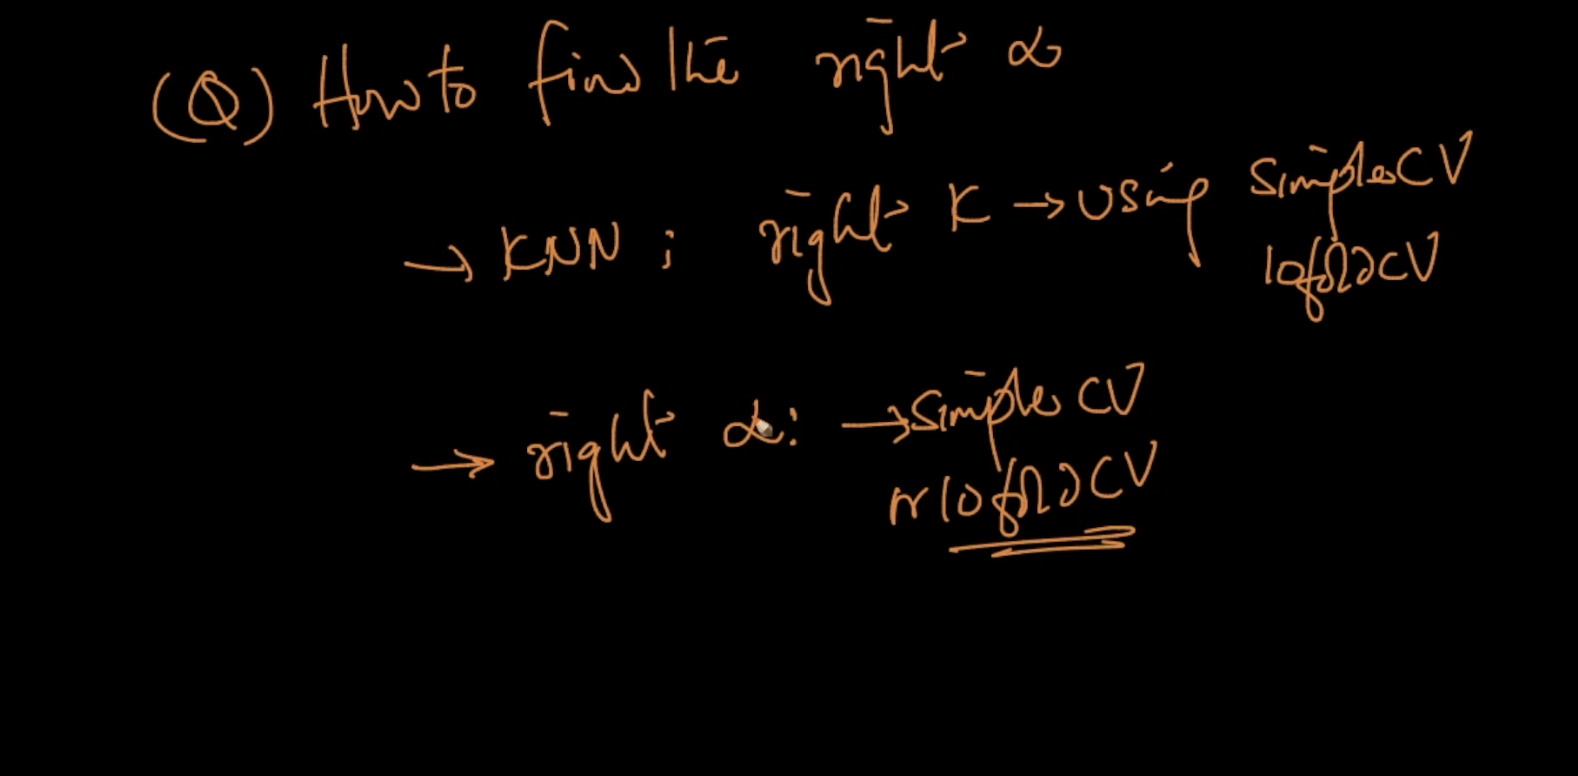 (Q) How to find the right α
→ KNN ; right K → using simple CV
10fold CV
→ right α: → simple CV
or 10 fold CV